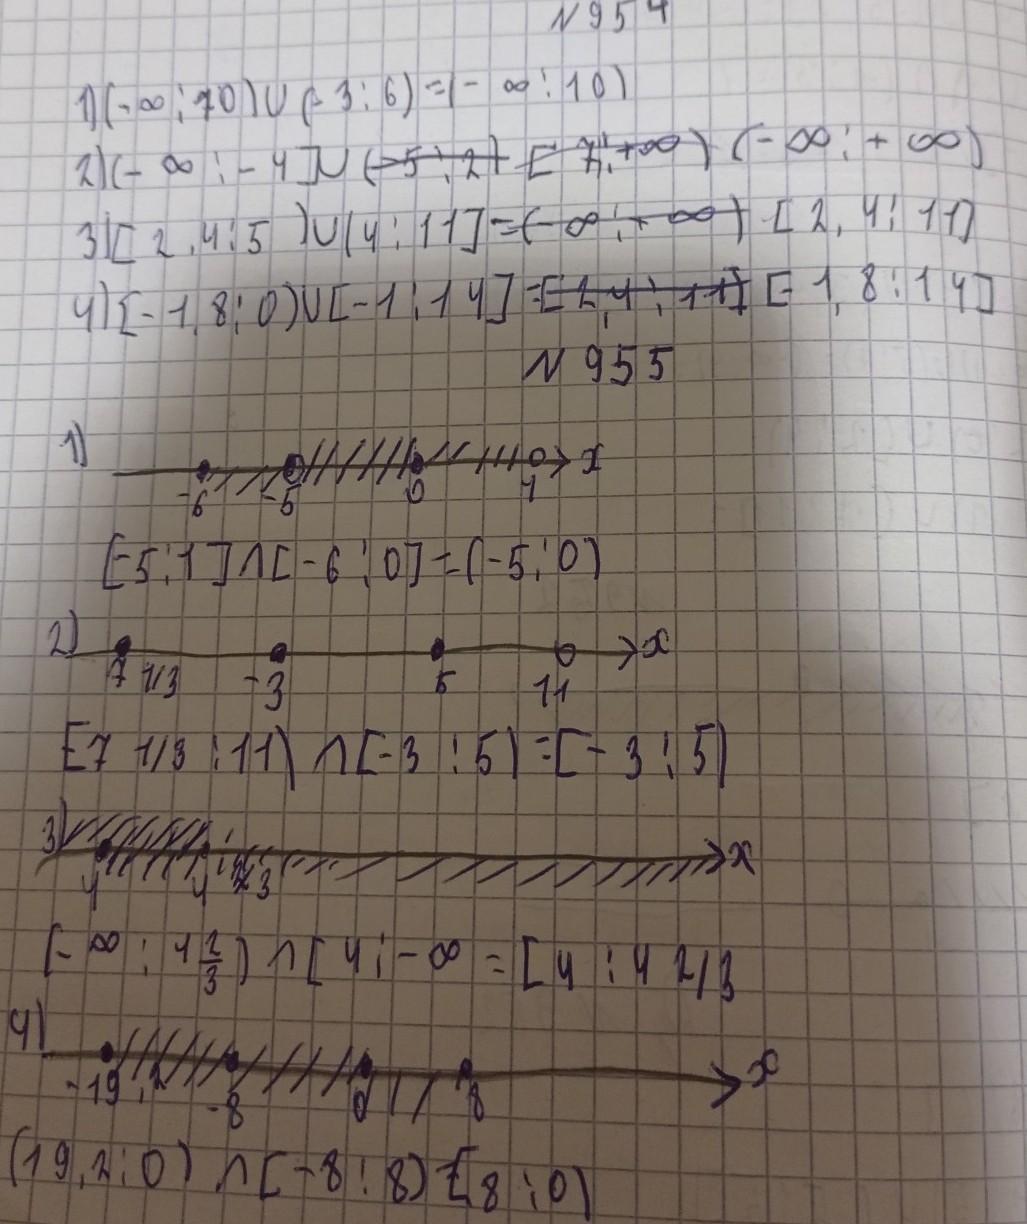 N 954
1) (-∞ ; 10) ∪ (-3 ; 6) = (-∞ ; 10)
2) (-∞ ; -4] ∪ (-5 ; 2) [7 ; +∞) (-∞ ; +∞)
3) [2,4 ; 5) ∪ (4 ; 11] = (-∞ ; +∞) [2,4 ; 11]
4) [-1,8 ; 0) ∪ [-1 ; 14] = [2,4 ; 11] [-1,8 ; 14]
N 955
1)
x
-6 -5 0 1
[-5 ; 1] ∩ [-6 ; 0] = (-5 ; 0)
2)
x
7 1/3 -3 5 11
[7 1/3 ; 11) ∩ [-3 ; 5) = [-3 ; 5)
3)
x
4 4 2/3
(-∞ ; 4 2/3) ∩ [4 ; -∞ = [4 ; 4 2/3
4)
x
-19,2 -8 0 8
(19,2 ; 0) ∩ [-8 ; 8) = [8 ; 0)